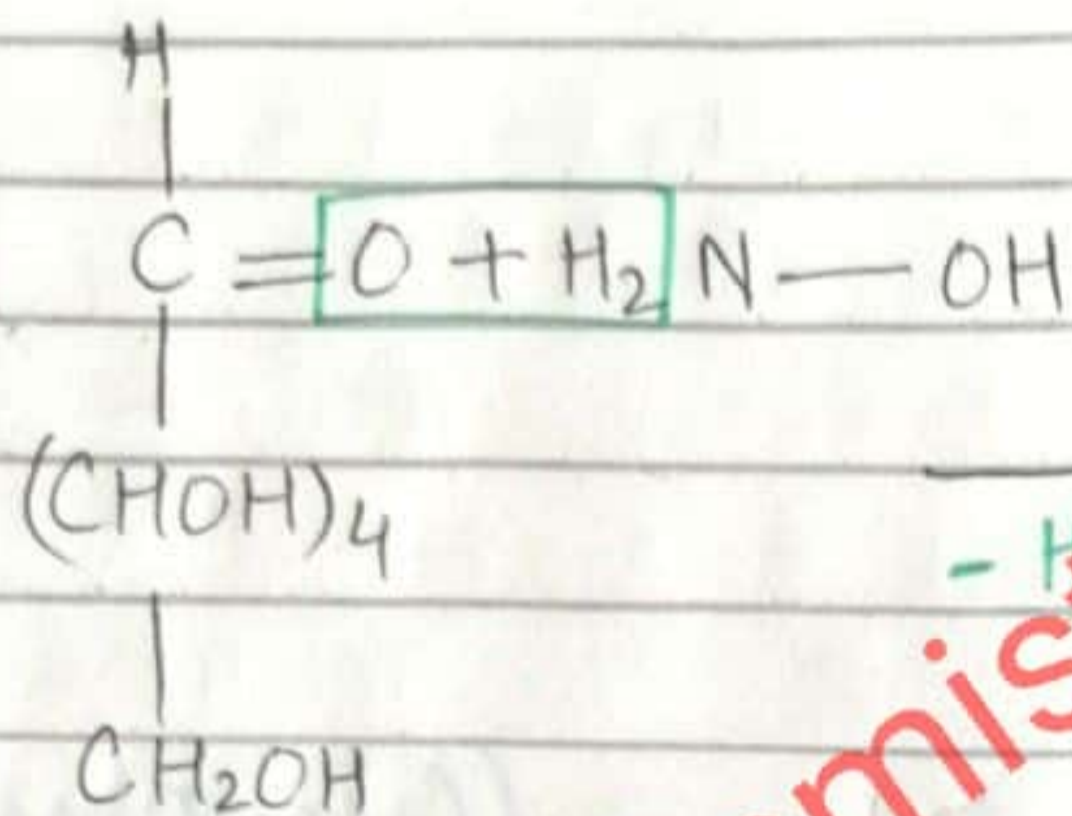 H
C = O + H₂ N — OH
(CHOH)₄
- H
CH₂OH
mis